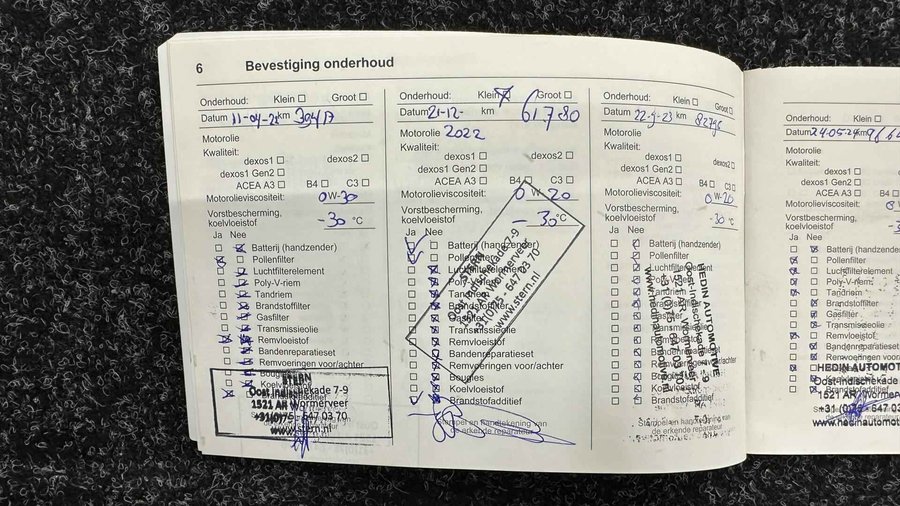 6 Bevestiging onderhoud
Onderhoud: Klein Groot
Datum 11-04-21 km 39417
Motorolie
Kwaliteit:
dexos1 dexos2
dexos1 Gen2
ACEA A3 B4 C3
Motorolieviscositeit: 0W-30
Vorstbescherming,
koelvloeistof -30 °C
Ja Nee
Batterij (handzender)
Pollenfilter
Luchtfilterelement
Poly-V-riem
Tandriem
Brandstoffilter
Gasfilter
Transmissieolie
Remvloeistof
Bandenreparatieset
Remvoeringen voor/achter
STERN
Oost Indischekade 7-9
1521 AR Wormerveer
+31(0)75 - 647 03 70
www.stern.nl
Onderhoud: Klein Groot
Datum 21-12- km 61780
Motorolie 2022
Kwaliteit:
dexos1 dexos2
dexos1 Gen2
ACEA A3 B4 C3
Motorolieviscositeit: 0W-20
Vorstbescherming,
koelvloeistof -30°C
Ja Nee
Batterij (handzender)
Pollenfilter
Luchtfilterelement
Poly-V-riem
Tandriem
Brandstoffilter
Gasfilter
Transmissieolie
Remvloeistof
Bandenreparatieset
Remvoeringen voor/achter
Bougies
Koelvloeistof
Brandstofadditief
Stempel en handtekening van
erkende reparateur
STERN
Oost-Indischekade 7-9
1521 AR Wormerveer
+31(0)75 - 647 03 70
www.stern.nl
Onderhoud: Klein Groot
Datum km
Motorolie
Kwaliteit:
dexos1 dexos2
dexos1 Gen2
ACEA A3 B4 C3
Motorolieviscositeit: 0W-20
Vorstbescherming,
koelvloeistof -30 °C
Ja Nee
Batterij (handzender)
Pollenfilter
Luchtfilterelement
Poly-V-riem
Tandriem
Brandstoffilter
Gasfilter
Transmissieolie
Remvloeistof
Bandenreparatieset
Remvoeringen voor/achter
Bougies
Koelvloeistof
Brandstofadditief
Stempel en handtekening van
de erkende reparateur
HEDIN AUTOMOTIVE
Oost-Indischekade 7-9
1521 AR Wormerveer
Onderhoud:
Datum 24-05-24 km
Motorolie
Kwaliteit:
dexos1
dexos1 Gen2
ACEA A3
Motorolieviscositeit:
Vorstbescherming,
koelvloeistof
Ja Nee
Batterij (handzender)
Pollenfilter
Luchtfilterelement
Poly-V-riem
Tandriem
Brandstoffilter
Gasfilter
Transmissieolie
Remvloeistof
Bandenreparatieset
Remvoeringen voor/achter
HEDIN AUTOMOT
Oost-Indischekade
1521 AR Wormer
647 03
www.hedinautomot